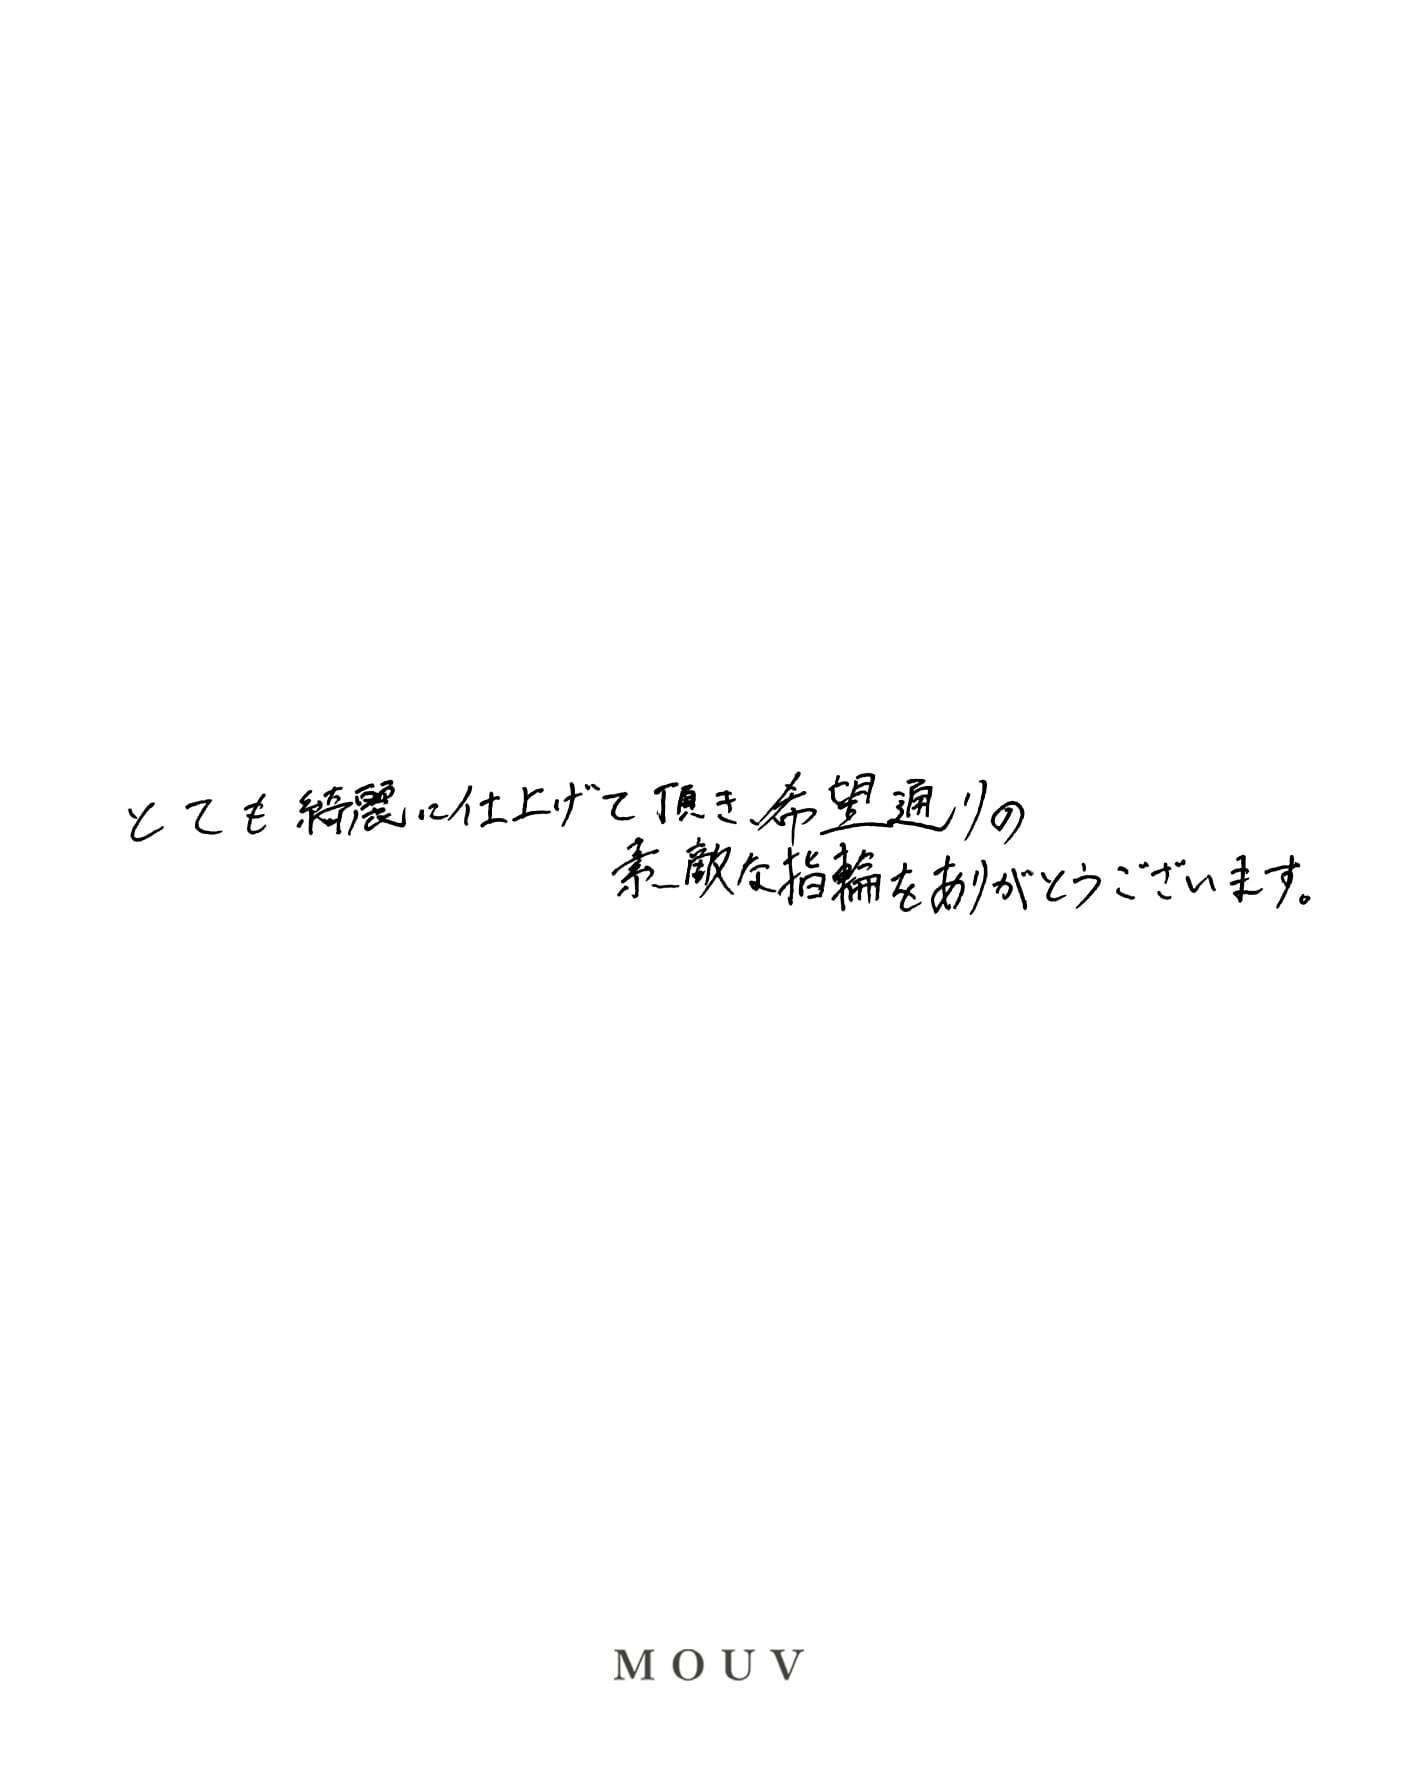 とても綺麗に仕上げて頂き、希望通りの
素敵な指輪をありがとうございます。
MOUV